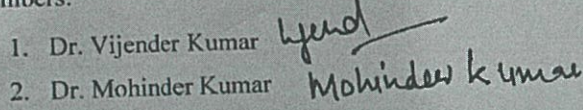 1. Dr. Vijender Kumar
2. Dr. Mohinder Kumar Mohinder Kumar